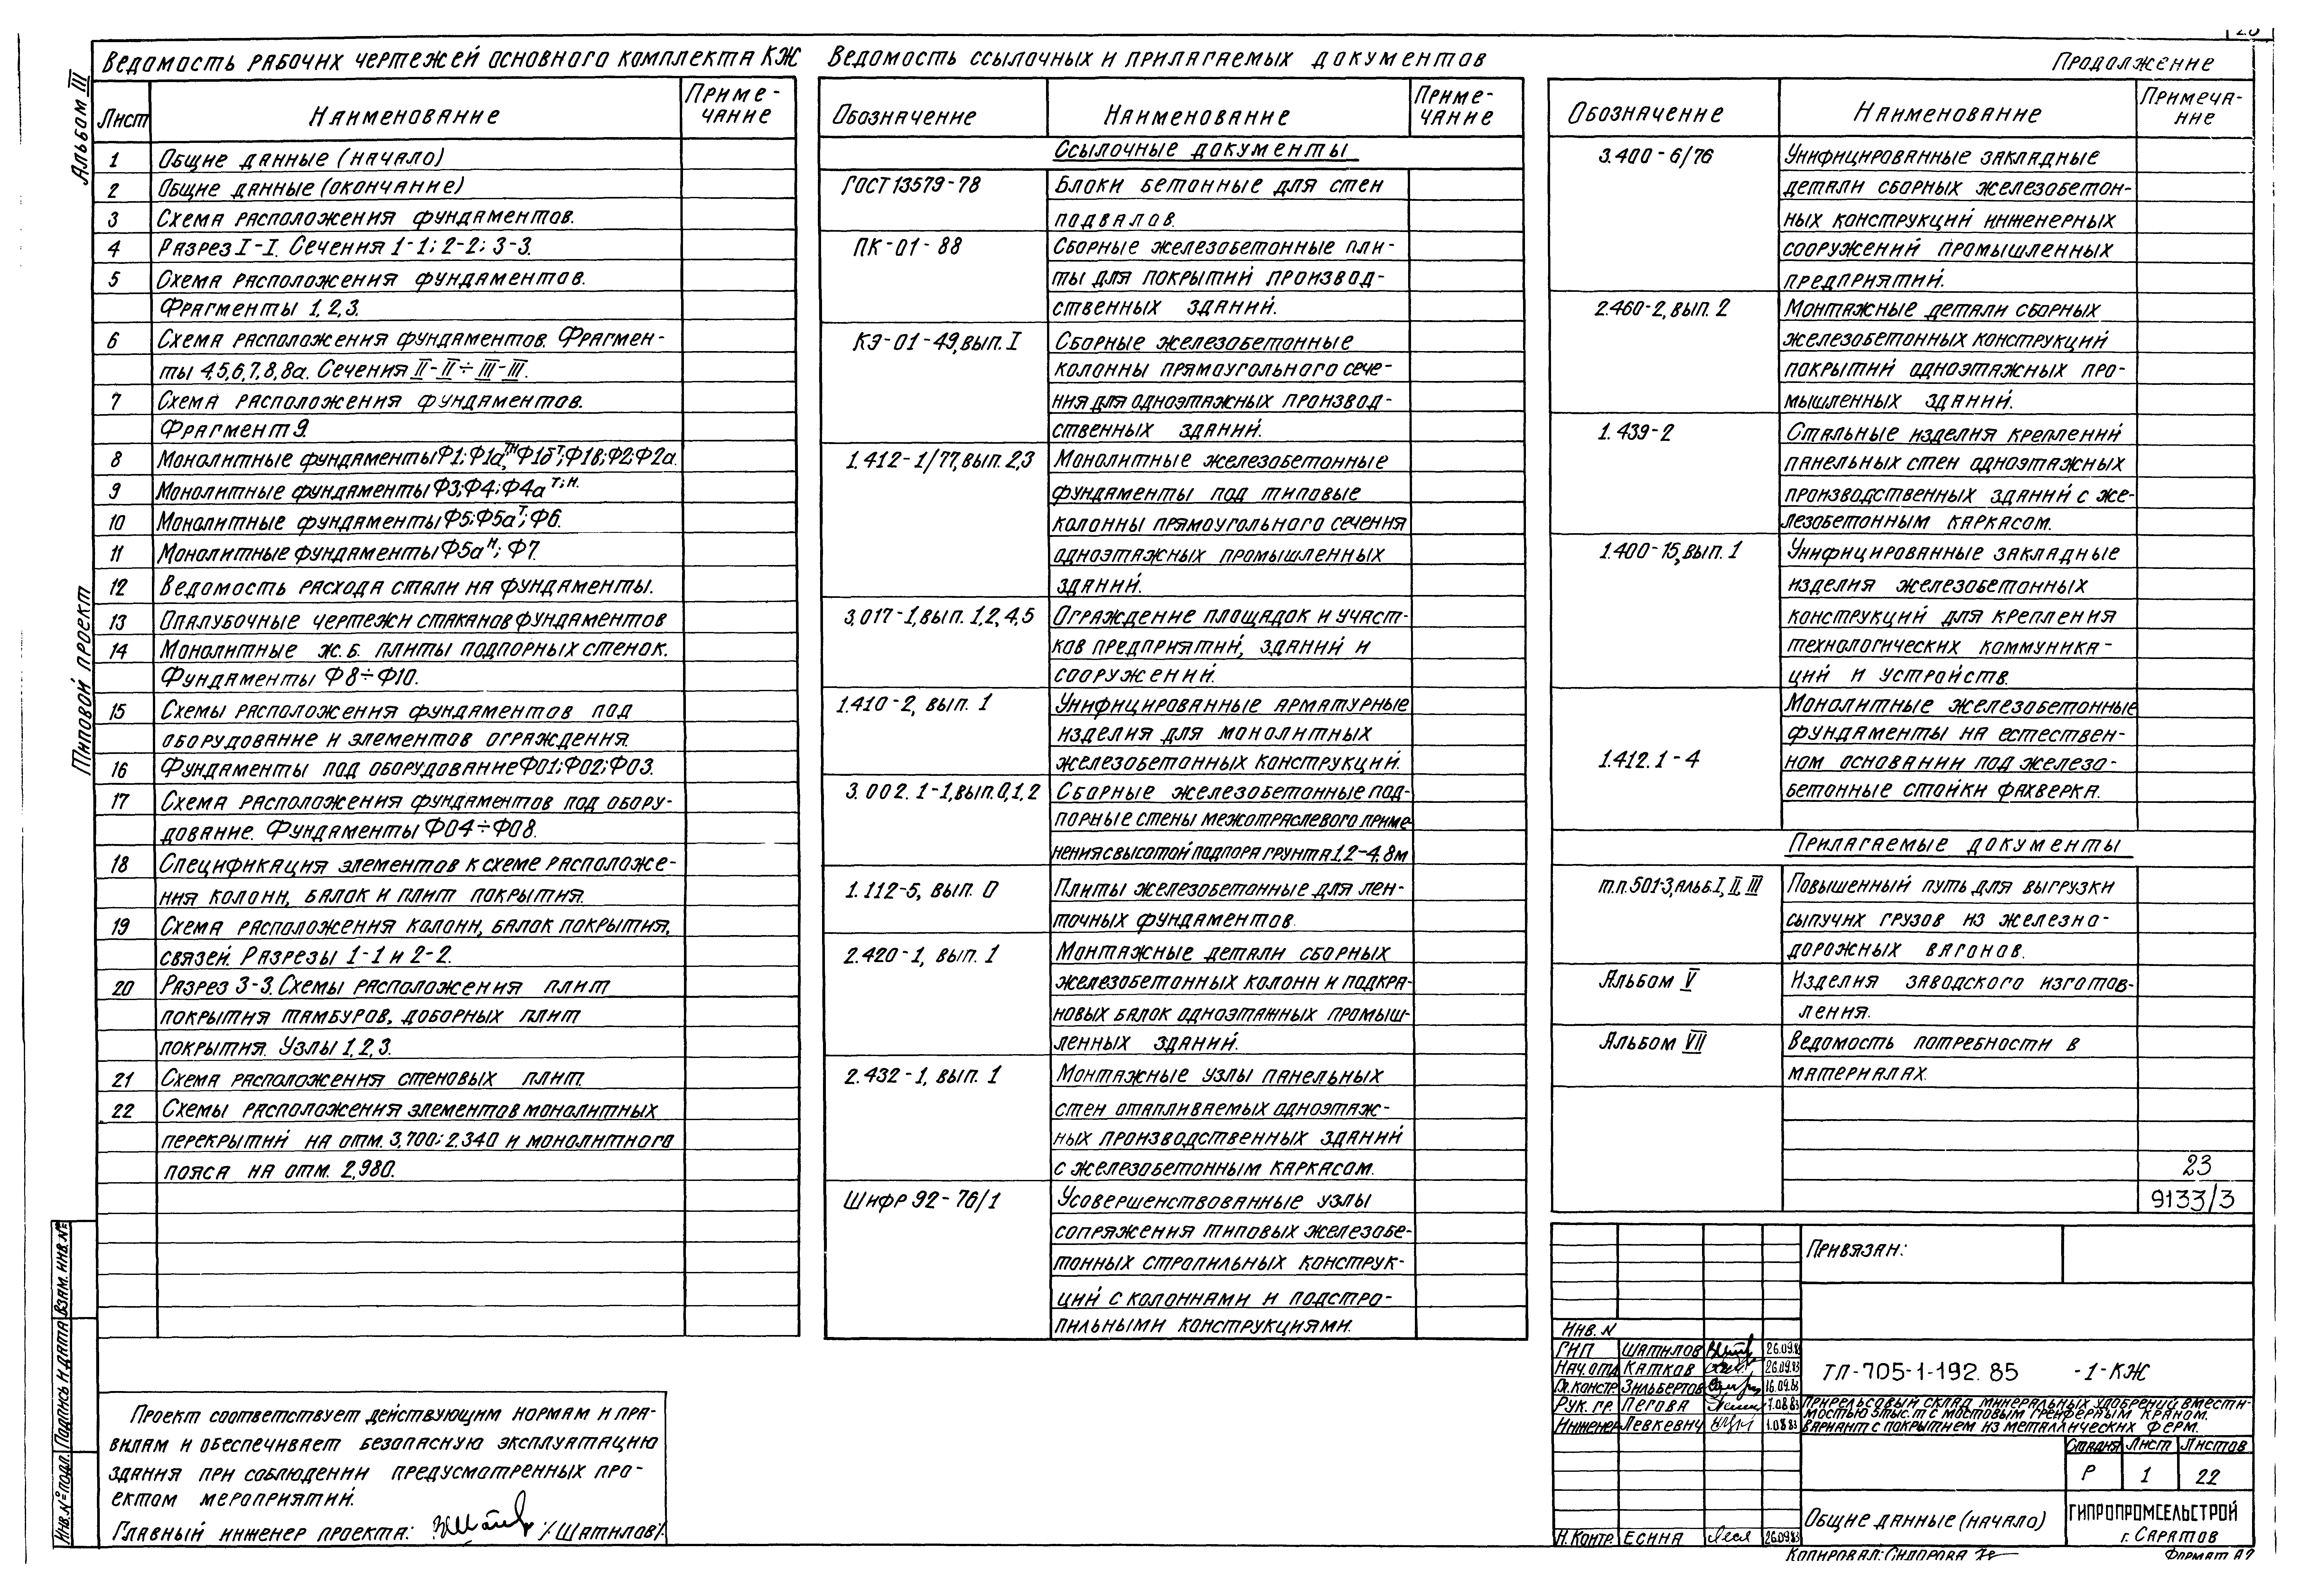 Альбом III
Типовой проект
Ведомость рабочих чертежей основного комплекта КЖ
Лист
Наименование
Приме-
чание
1 Общие данные (начало)
2 Общие данные (окончание)
3 Схема расположения фундаментов.
4 Разрез I-I. Сечения 1-1; 2-2; 3-3.
5 Схема расположения фундаментов.
Фрагменты 1, 2, 3.
6 Схема расположения фундаментов. Фрагмен-
ты 4,5,6,7,8,8а. Сечения II-II÷III-III.
7 Схема расположения фундаментов.
Фрагмент 9.
8 Монолитные фундаменты Ф1; Ф1а т,н; Ф1б т; Ф1в; Ф2; Ф2а.
9 Монолитные фундаменты Ф3; Ф4; Ф4а т; н.
10 Монолитные фундаменты Ф5; Ф5а т; Ф6.
11 Монолитные фундаменты Ф5а н; Ф7.
12 Ведомость расхода стали на фундаменты.
13 Опалубочные чертежи стаканов фундаментов
14 Монолитные ж.б. плиты подпорных стенок.
Фундаменты Ф8÷Ф10.
15 Схемы расположения фундаментов под
оборудование и элементов ограждения.
16 Фундаменты под оборудование Ф01; Ф02; Ф03.
17 Схема расположения фундаментов под обору-
дование. Фундаменты Ф04÷Ф08.
18 Спецификация элементов к схеме расположе-
ния колонн, балок и плит покрытия.
19 Схема расположения колонн, балок покрытия,
связей. Разрезы 1-1 и 2-2.
20 Разрез 3-3. Схемы расположения плит
покрытия тамбуров, доборных плит
покрытия. Узлы 1, 2, 3.
21 Схема расположения стеновых плит.
22 Схемы расположения элементов монолитных
перекрытий на отм. 3,700; 2.340 и монолитного
пояса на отм. 2,980.
Проект соответствует действующим нормам и пра-
вилам и обеспечивает безопасную эксплуатацию
здания при соблюдении предусмотренных про-
ектом мероприятий.
Главный инженер проекта: /Шатилов/.
Ведомость ссылочных и прилагаемых документов
Обозначение
Наименование
Приме-
чание
Ссылочные документы
ГОСТ 13579-78 Блоки бетонные для стен
подвалов.
ПК-01-88 Сборные железобетонные пли-
ты для покрытий производ-
ственных зданий.
КЭ-01-49, вып. I Сборные железобетонные
колонны прямоугольного сече-
ния для одноэтажных производ-
ственных зданий.
1.412-1/77, вып. 2,3 Монолитные железобетонные
фундаменты под типовые
колонны прямоугольного сечения
одноэтажных промышленных
зданий.
3.017-1, вып. 1,2,4,5 Ограждение площадок и участ-
ков предприятий, зданий и
сооружений.
1.410-2, вып. 1 Унифицированные арматурные
изделия для монолитных
железобетонных конструкций.
3.002.1-1, вып. 0,1,2 Сборные железобетонные под-
порные стены межотраслевого приме-
нения с высотой подпора грунта 1,2-4,8м
1.112-5, вып. 0 Плиты железобетонные для лен-
точных фундаментов.
2.420-1, вып. 1 Монтажные детали сборных
железобетонных колонн и подкра-
новых балок одноэтажных промыш-
ленных зданий.
2.432-1, вып. 1 Монтажные узлы панельных
стен отапливаемых одноэтаж-
ных производственных зданий
с железобетонным каркасом.
Шифр 92-76/1 Усовершенствованные узлы
сопряжения типовых железобе-
тонных стропильных конструк-
ций с колоннами и подстро-
пильными конструкциями.
Продолжение
Обозначение
Наименование
Примеча-
ние
3.400-6/76 Унифицированные закладные
детали сборных железобетон-
ных конструкций инженерных
сооружений промышленных
предприятий.
2.460-2, вып. 2 Монтажные детали сборных
железобетонных конструкций
покрытий одноэтажных про-
мышленных зданий.
1.439-2 Стальные изделия креплений
панельных стен одноэтажных
производственных зданий с же-
лезобетонным каркасом.
1.400-15, вып. 1 Унифицированные закладные
изделия железобетонных
конструкций для крепления
технологических коммуника-
ций и устройств.
Монолитные железобетонные
фундаменты на естествен-
1.412.1-4 ном основании под железо-
бетонные стойки фахверка.
Прилагаемые документы
т.п.501-3, альб. I, II, III Повышенный путь для выгрузки
сыпучих грузов из железно-
дорожных вагонов.
Альбом V Изделия заводского изготов-
ления.
Альбом VII Ведомость потребности в
материалах.
23
9133/3
Привязан:
Инв. N
ГИП Шатилов 26.09.83
Нач. отд Катков 26.09.83
Гл. констр. Зильбертов 16.09.83
Рук. гр. Пегова
Инженер Левкевич
Н. контр. Есина 26.09.83
ТП-705-1-192.85 -1-КЖ
Прирельсовый склад минеральных удобрений вмести-
мостью 5тыс. т с мостовым грейферным краном.
Вариант с покрытием из металлических ферм.
Стадия Лист Листов
Р 1 22
Общие данные (начало)
ГИПРОПРОМСЕЛЬСТРОЙ
г. Саратов
Копировал: Сидорова
Формат А2
Инв. № подл. Подпись и дата Взам. инв. №